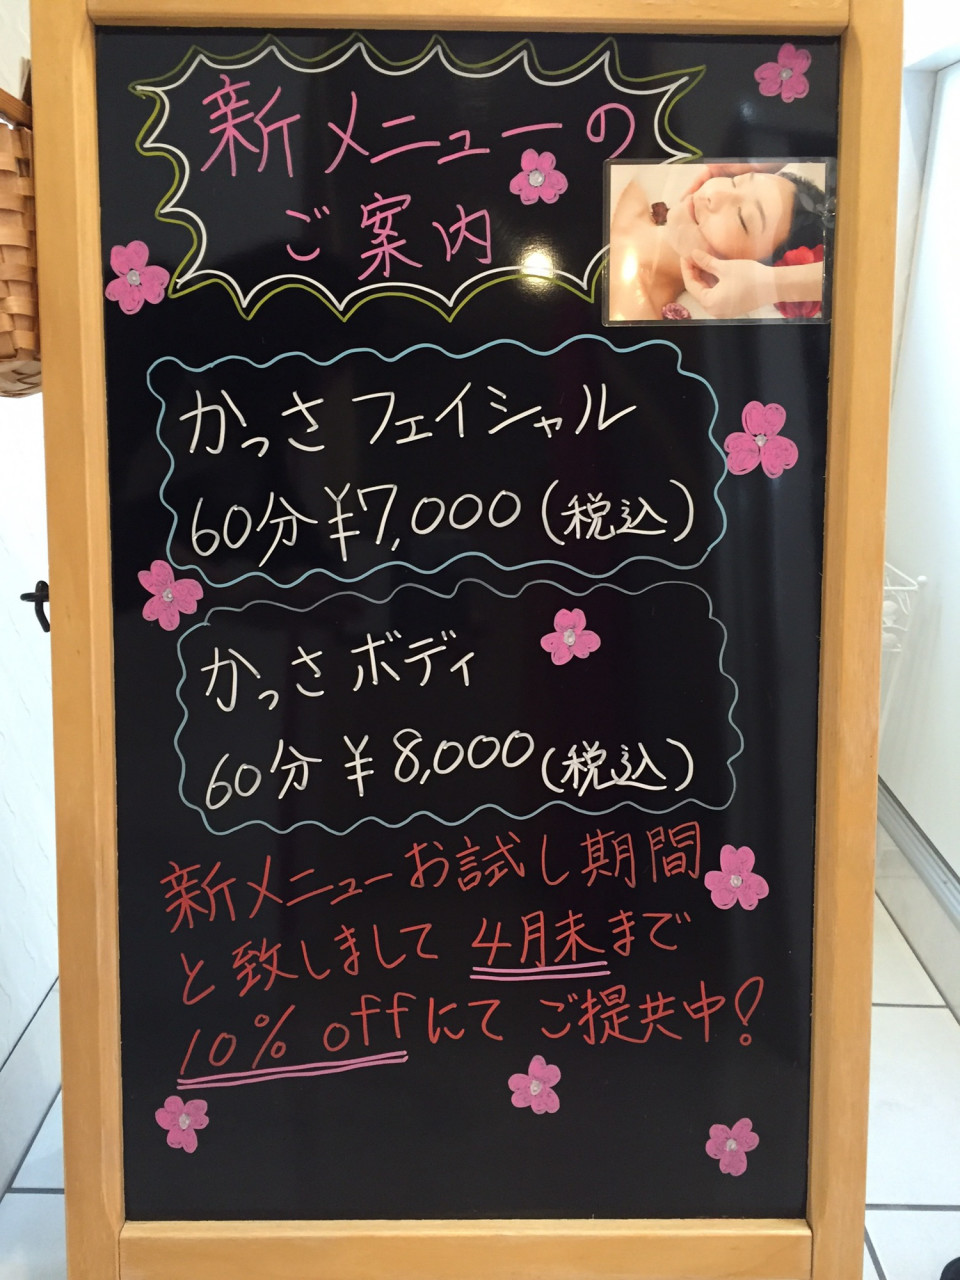 新メニューの
ご案内
かっさフェイシャル
60分 ¥7,000(税込)
かっさボディ
60分 ¥8,000(税込)
新メニューお試し期間
と致しまして 4月末まで
10% offにて ご提供中!